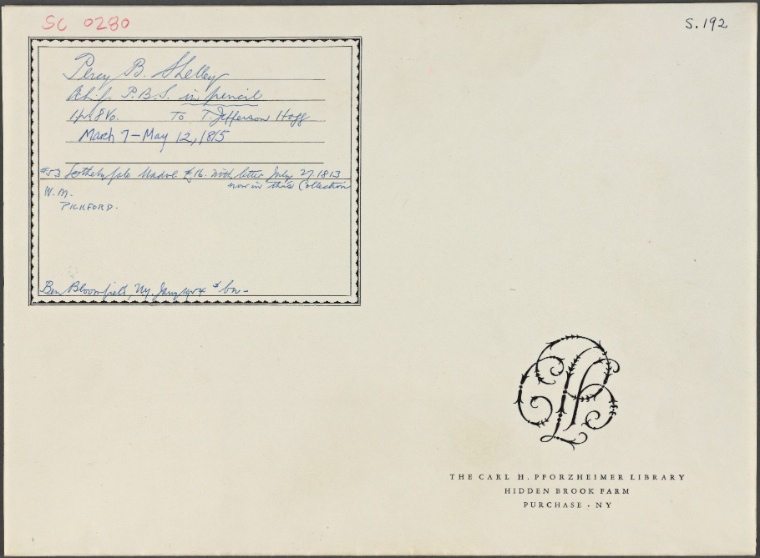 SC 0280
S. 192
Percy B. Shelley
P.B.S. in pencil
To T Jefferson Hogg
March 7 – May 12, 1815
Sotheby Sale £16. With letter July 27 1813
now in this Collection
W. M.
PICKFORD.
Ben Bloomfield, NY.
THE CARL H. PFORZHEIMER LIBRARY
HIDDEN BROOK FARM
PURCHASE · NY